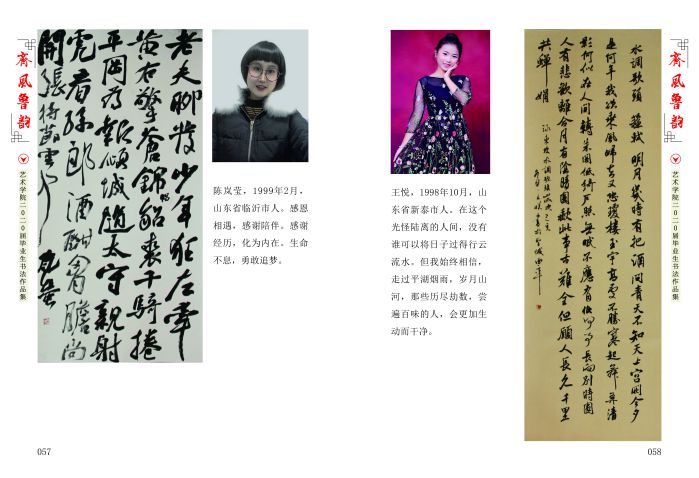 齐风鲁韵
艺术学院二〇二〇届毕业生书法作品集
老夫聊發少年狂左牽
黄右擎蒼錦貂裘千騎捲
平岡为報傾城随太守親射
虎看孫郎酒酣胷膽尚
開張
陈岚莹,1999年2月,
山东省临沂市人。感恩
相遇,感谢陪伴。感谢
经历,化为内在。生命
不息,勇敢追梦。
057
王悦,1998年10月,山
东省新泰市人。在这个
光怪陆离的人间,没有
谁可以将日子过得行云
流水。但我始终相信,
走过平湖烟雨,岁月山
河,那些历尽劫数,尝
遍百味的人,会更加生
动而干净。
水調歌頭 蘇軾 明月幾時有把酒問青天不知天上宫闕今夕
是何年我欲乘風歸去又恐瓊樓玉宇高處不勝寒起舞弄清
影何似在人間轉朱閣低綺户照無眠不應有恨何事長向别時圓
人有悲歡離合月有陰晴圓缺此事古難全但願人長久千里
共嬋娟
齐风鲁韵
艺术学院二〇二〇届毕业生书法作品集
058